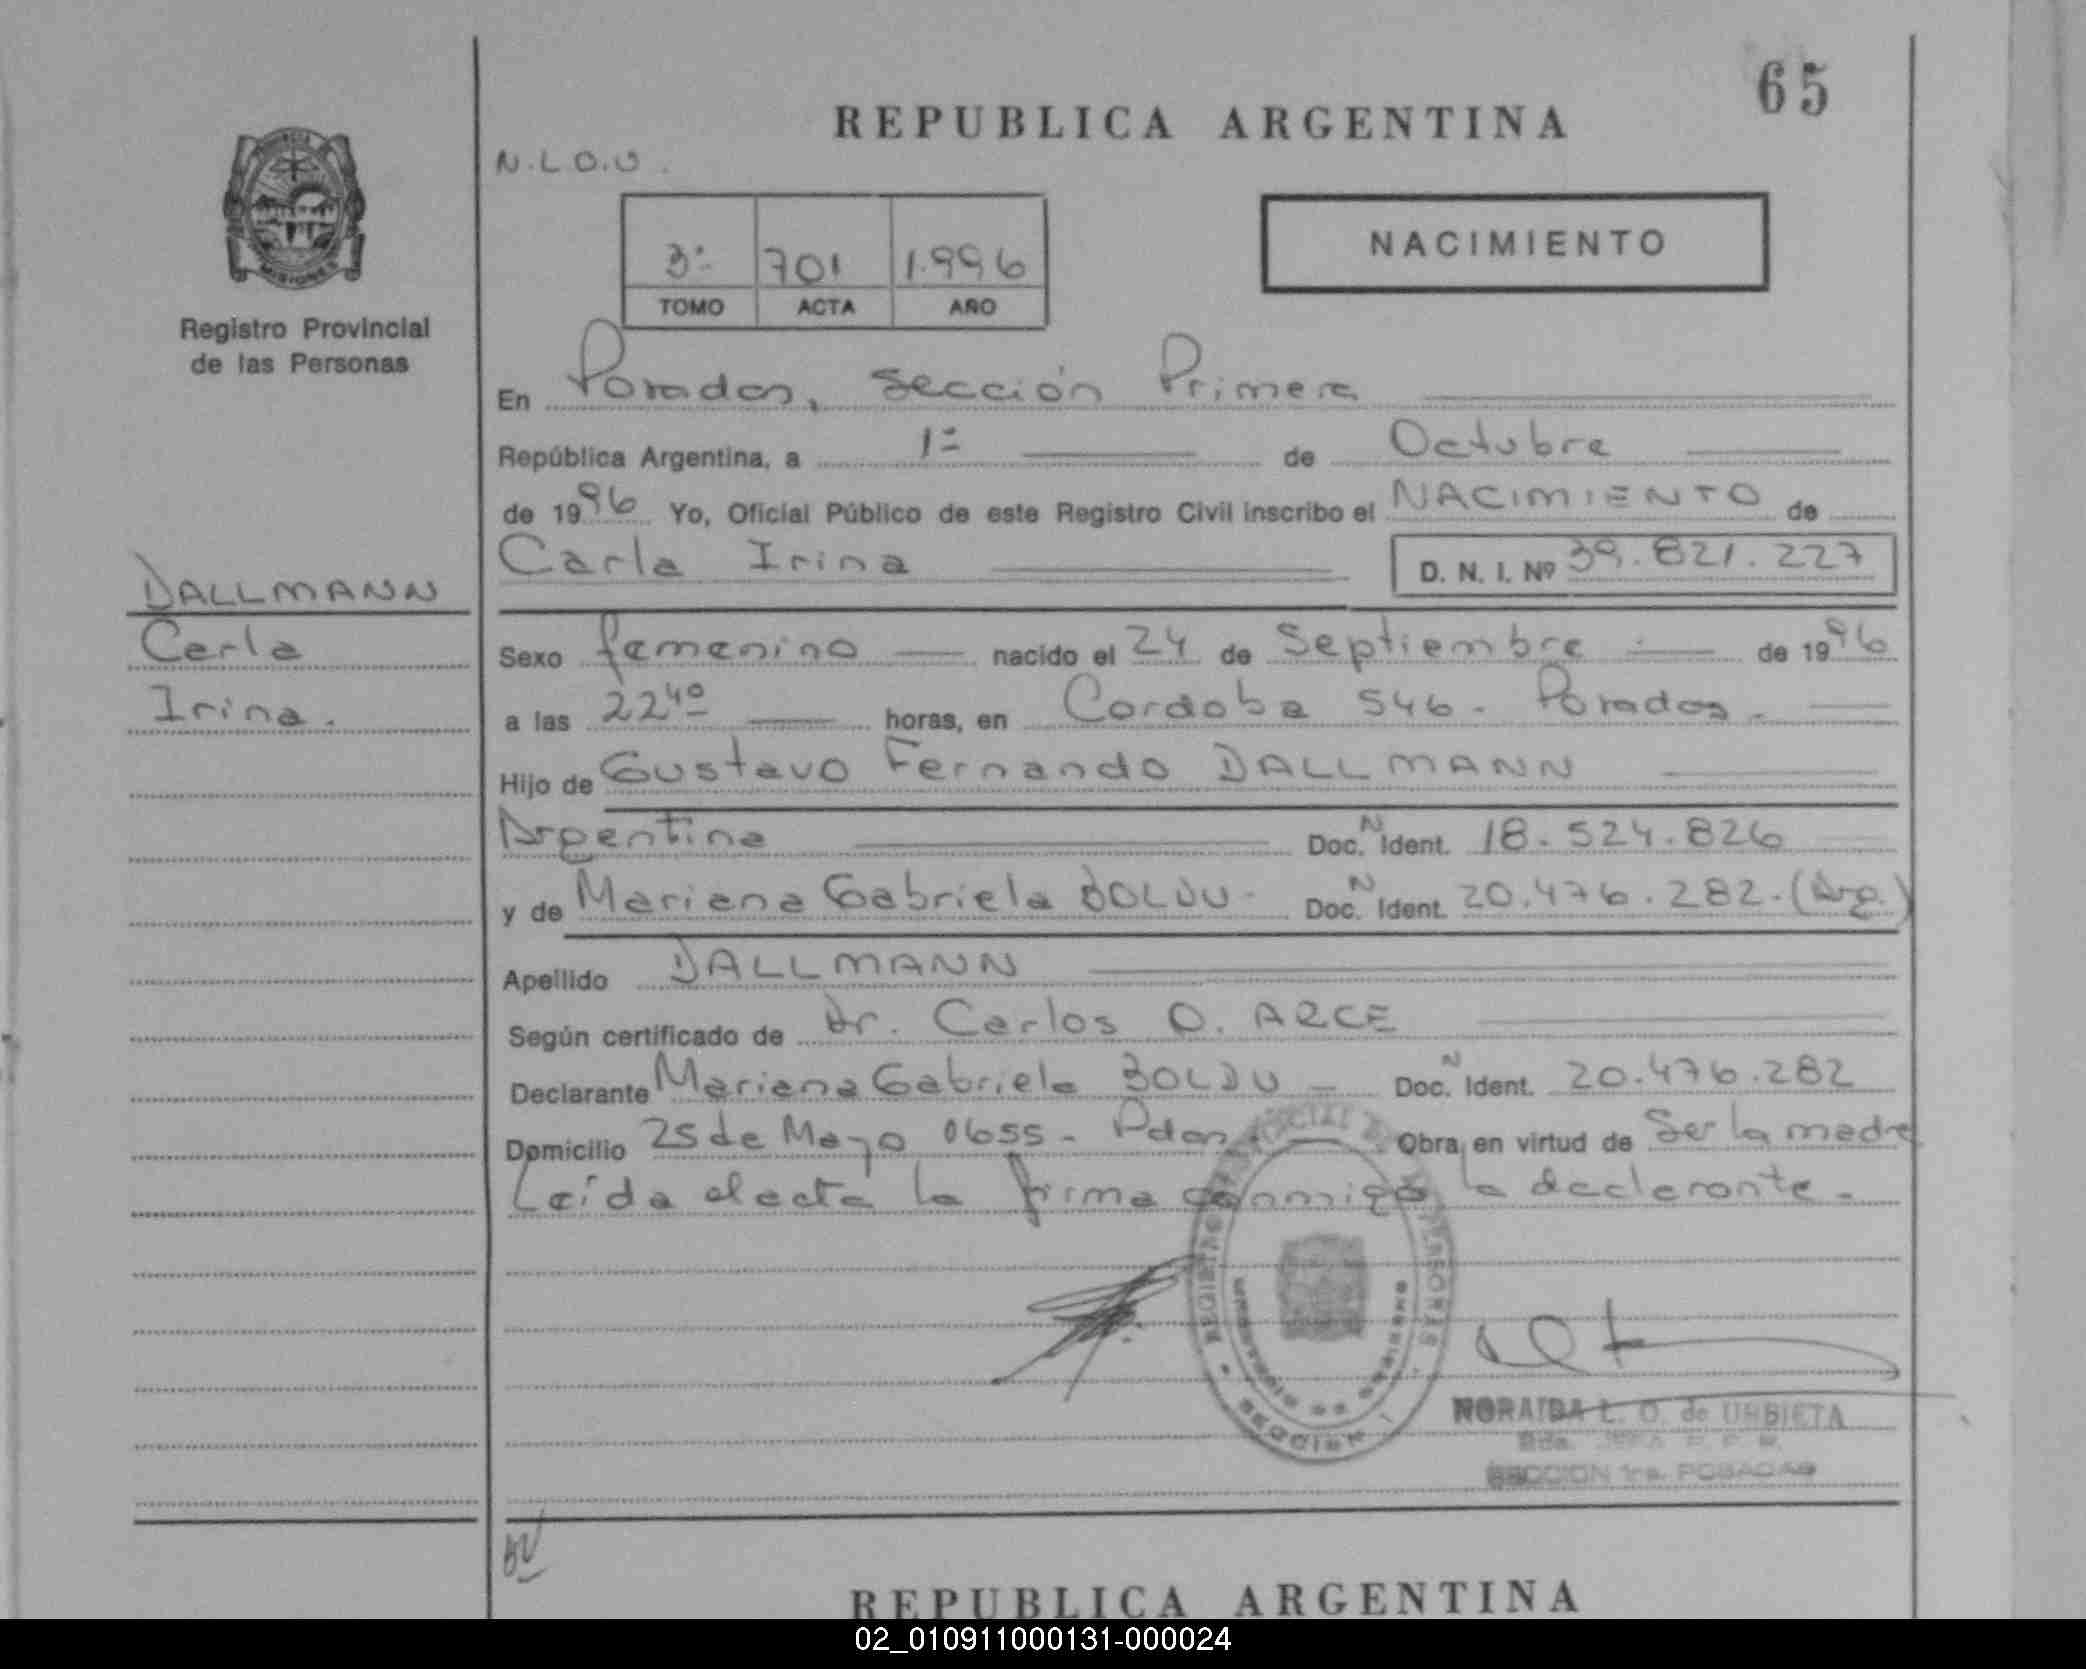 65
REPUBLICA ARGENTINA
N.L.O.U.
3º 701 1.996
TOMO ACTA AÑO
NACIMIENTO
MISIONES
Registro Provincial
de las Personas
En Posadas, Sección Primera
República Argentina, a 1º de Octubre
de 1996 Yo, Oficial Público de este Registro Civil inscribo el NACIMIENTO de
Carla Irina D. N. I. Nº 39.821.227
DALLMANN
Carla
Irina.
Sexo femenino nacido el 24 de Septiembre de 1996
a las 22⁴⁰ horas, en Cordoba 546. Posadas.
Hijo de Gustavo Fernando DALLMANN
Argentina Doc. N Ident. 18.524.826
y de Mariana Gabriela BOLDU Doc. N Ident. 20.476.282.(Arg.)
Apellido DALLMANN
Según certificado de Dr. Carlos O. ARCE
Declarante Mariana Gabriela BOLDU Doc. N Ident. 20.476.282
Domicilio 25 de Mayo 0655 - Pdas. Obra en virtud de Ser la madre
Leída el acta la firma conmigo la declarante.
REGISTRO PROVINCIAL DE LAS PERSONAS
SECCION 1
NORAIDA L. O. de URBIETA
SECCION 1ra. POSADAS
REPUBLICA ARGENTINA
02_010911000131-000024